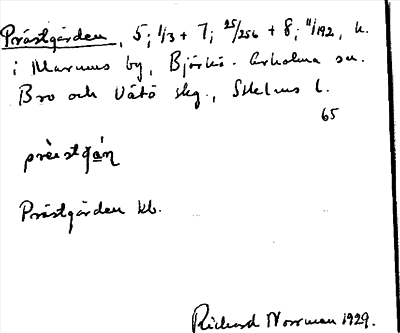 Prästgården, 5; 1/3 + 7; 25/256 + 8; 11/192, h.
i Marums by, Björkö-Arholma sn.
Bro och Vätö skg., Sthlms l.
65
prèstgán
Prästgården kb.
Richard Norrman 1929.